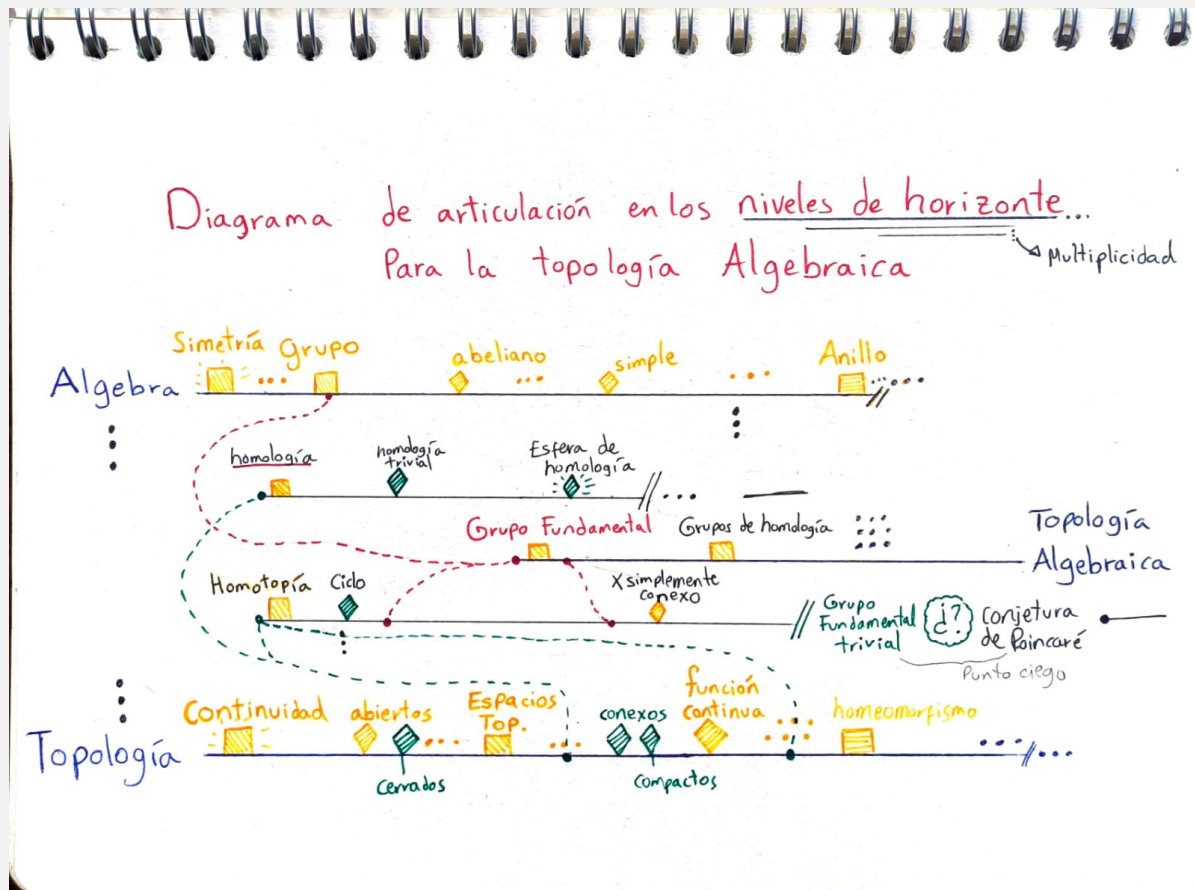 Diagrama de articulación en los niveles de horizonte...
Para la topología Algebraica
Multiplicidad
Simetría Grupo abeliano simple Anillo
Algebra
homología homología trivial Esfera de homología
Grupo Fundamental Grupos de homología
Topología Algebraica
Homotopía Ciclo X simplemente conexo
Grupo Fundamental trivial ¿? Conjetura de Poincaré
Punto ciego
Continuidad abiertos Espacios Top. conexos función continua homeomorfismo
Topología
Cerrados Compactos